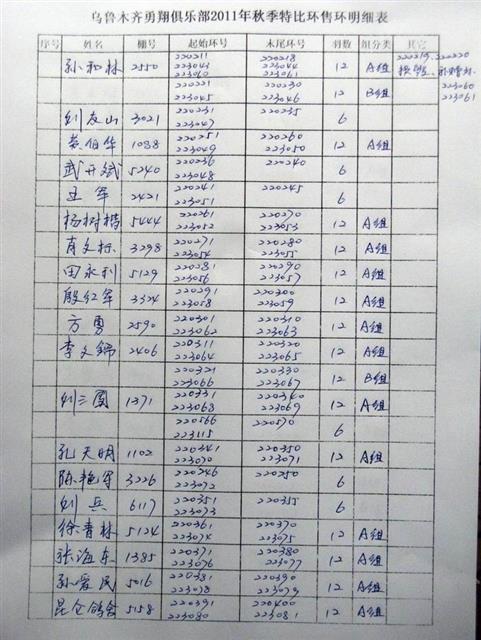 乌鲁木齐勇翔俱乐部2011年秋季特比环售环明细表
序号 姓名 棚号 起始环号 末尾环号 羽数 组分类 其它
孙和林 2550 220211 220218 12 A组 220219, 220220
223043 223044
223060 223061
220221 220230 12 B组 223060
223045 223046 223061
刘友山 3021 220231 220235 6
223047
1088 220251 220260 12 A组
223049 223050
武开斌 5240 220236 220240 6
223048
王军 2421 220241 220245 6
223051
杨树楷 5444 220261 220270 12 A组
223052 223053
肖文标 3298 220271 220280 12 A组
223054 223055
田永利 5129 220281 220290 12 A组
223056 223057
殷红军 3324 220291 220300 12 A组
223058 223059
方勇 2590 220301 220310 12 A组
223062 223063
李文锦 2406 220311 220320 12 A组
223064 223065
220321 220330 12 B组
223066 223067
刘三圆 1371 220331 220340 12 A组
223068 223069
220566 220570 6
223115
孔天明 1102 220341 220350 12 A组
223070 223071
陈艳军 3226 220246 220250 6
223072
刘兵 6117 220351 220355 6
223073
徐青林 5124 220361 220370 12 A组
223074 223075
张海东 1385 220371 220380 12 A组
223076 223077
孙爱民 5016 220381 220390 12 A组
223078 223079
昆仑鸽舍 5158 220391 220400 12 A组
223080 223081